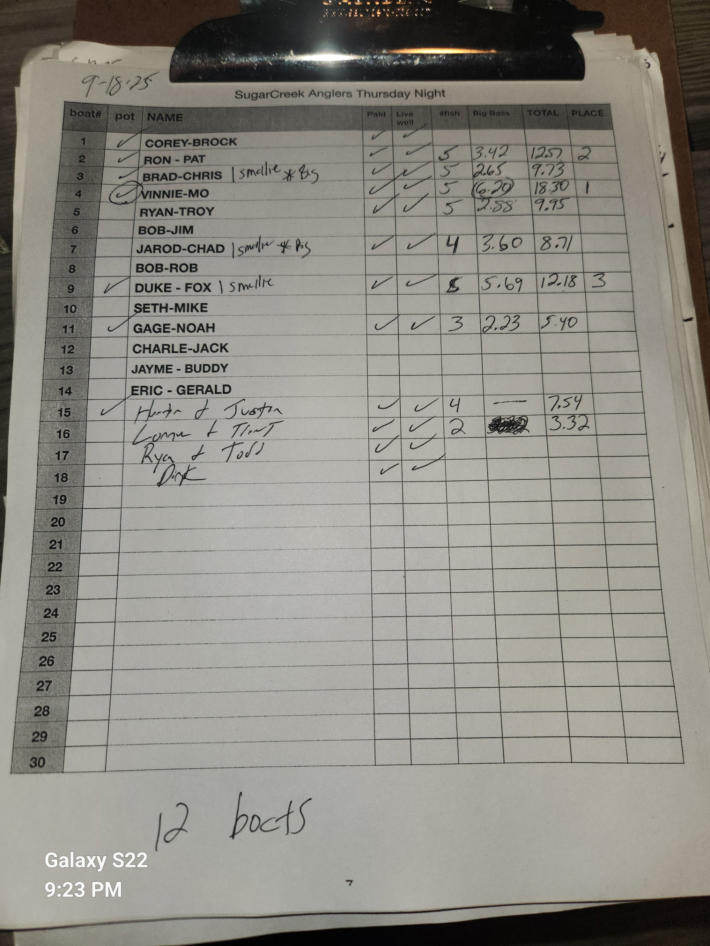 9-18-25
SugarCreek Anglers Thursday Night
boat# pot NAME Paid Live well #fish Big Bass TOTAL PLACE
1 ✓ COREY-BROCK ✓ ✓
2 ✓ RON - PAT ✓ ✓ 5 3.42 12.57 2
3 ✓ BRAD-CHRIS 1 smallie * Big ✓ ✓ 5 2.65 9.73
4 ✓ VINNIE-MO ✓ ✓ 5 6.20 18.30 1
5 RYAN-TROY ✓ ✓ 5 2.88 9.95
6 BOB-JIM
7 JAROD-CHAD 1 smallie * Big ✓ ✓ 4 3.60 8.71
8 BOB-ROB
9 ✓ DUKE - FOX 1 smallie ✓ ✓ 5 5.69 12.18 3
10 SETH-MIKE
11 ✓ GAGE-NOAH ✓ ✓ 3 2.23 5.40
12 CHARLE-JACK
13 JAYME - BUDDY
14 ERIC - GERALD
15 ✓ & Justin ✓ ✓ 4 — 7.54
16 & ✓ ✓ 2 3.32
17 Ryan & Todd ✓ ✓
18 ✓ ✓
19
20
21
22
23
24
25
26
27
28
29
30
12 boats
Galaxy S22
9:23 PM
7